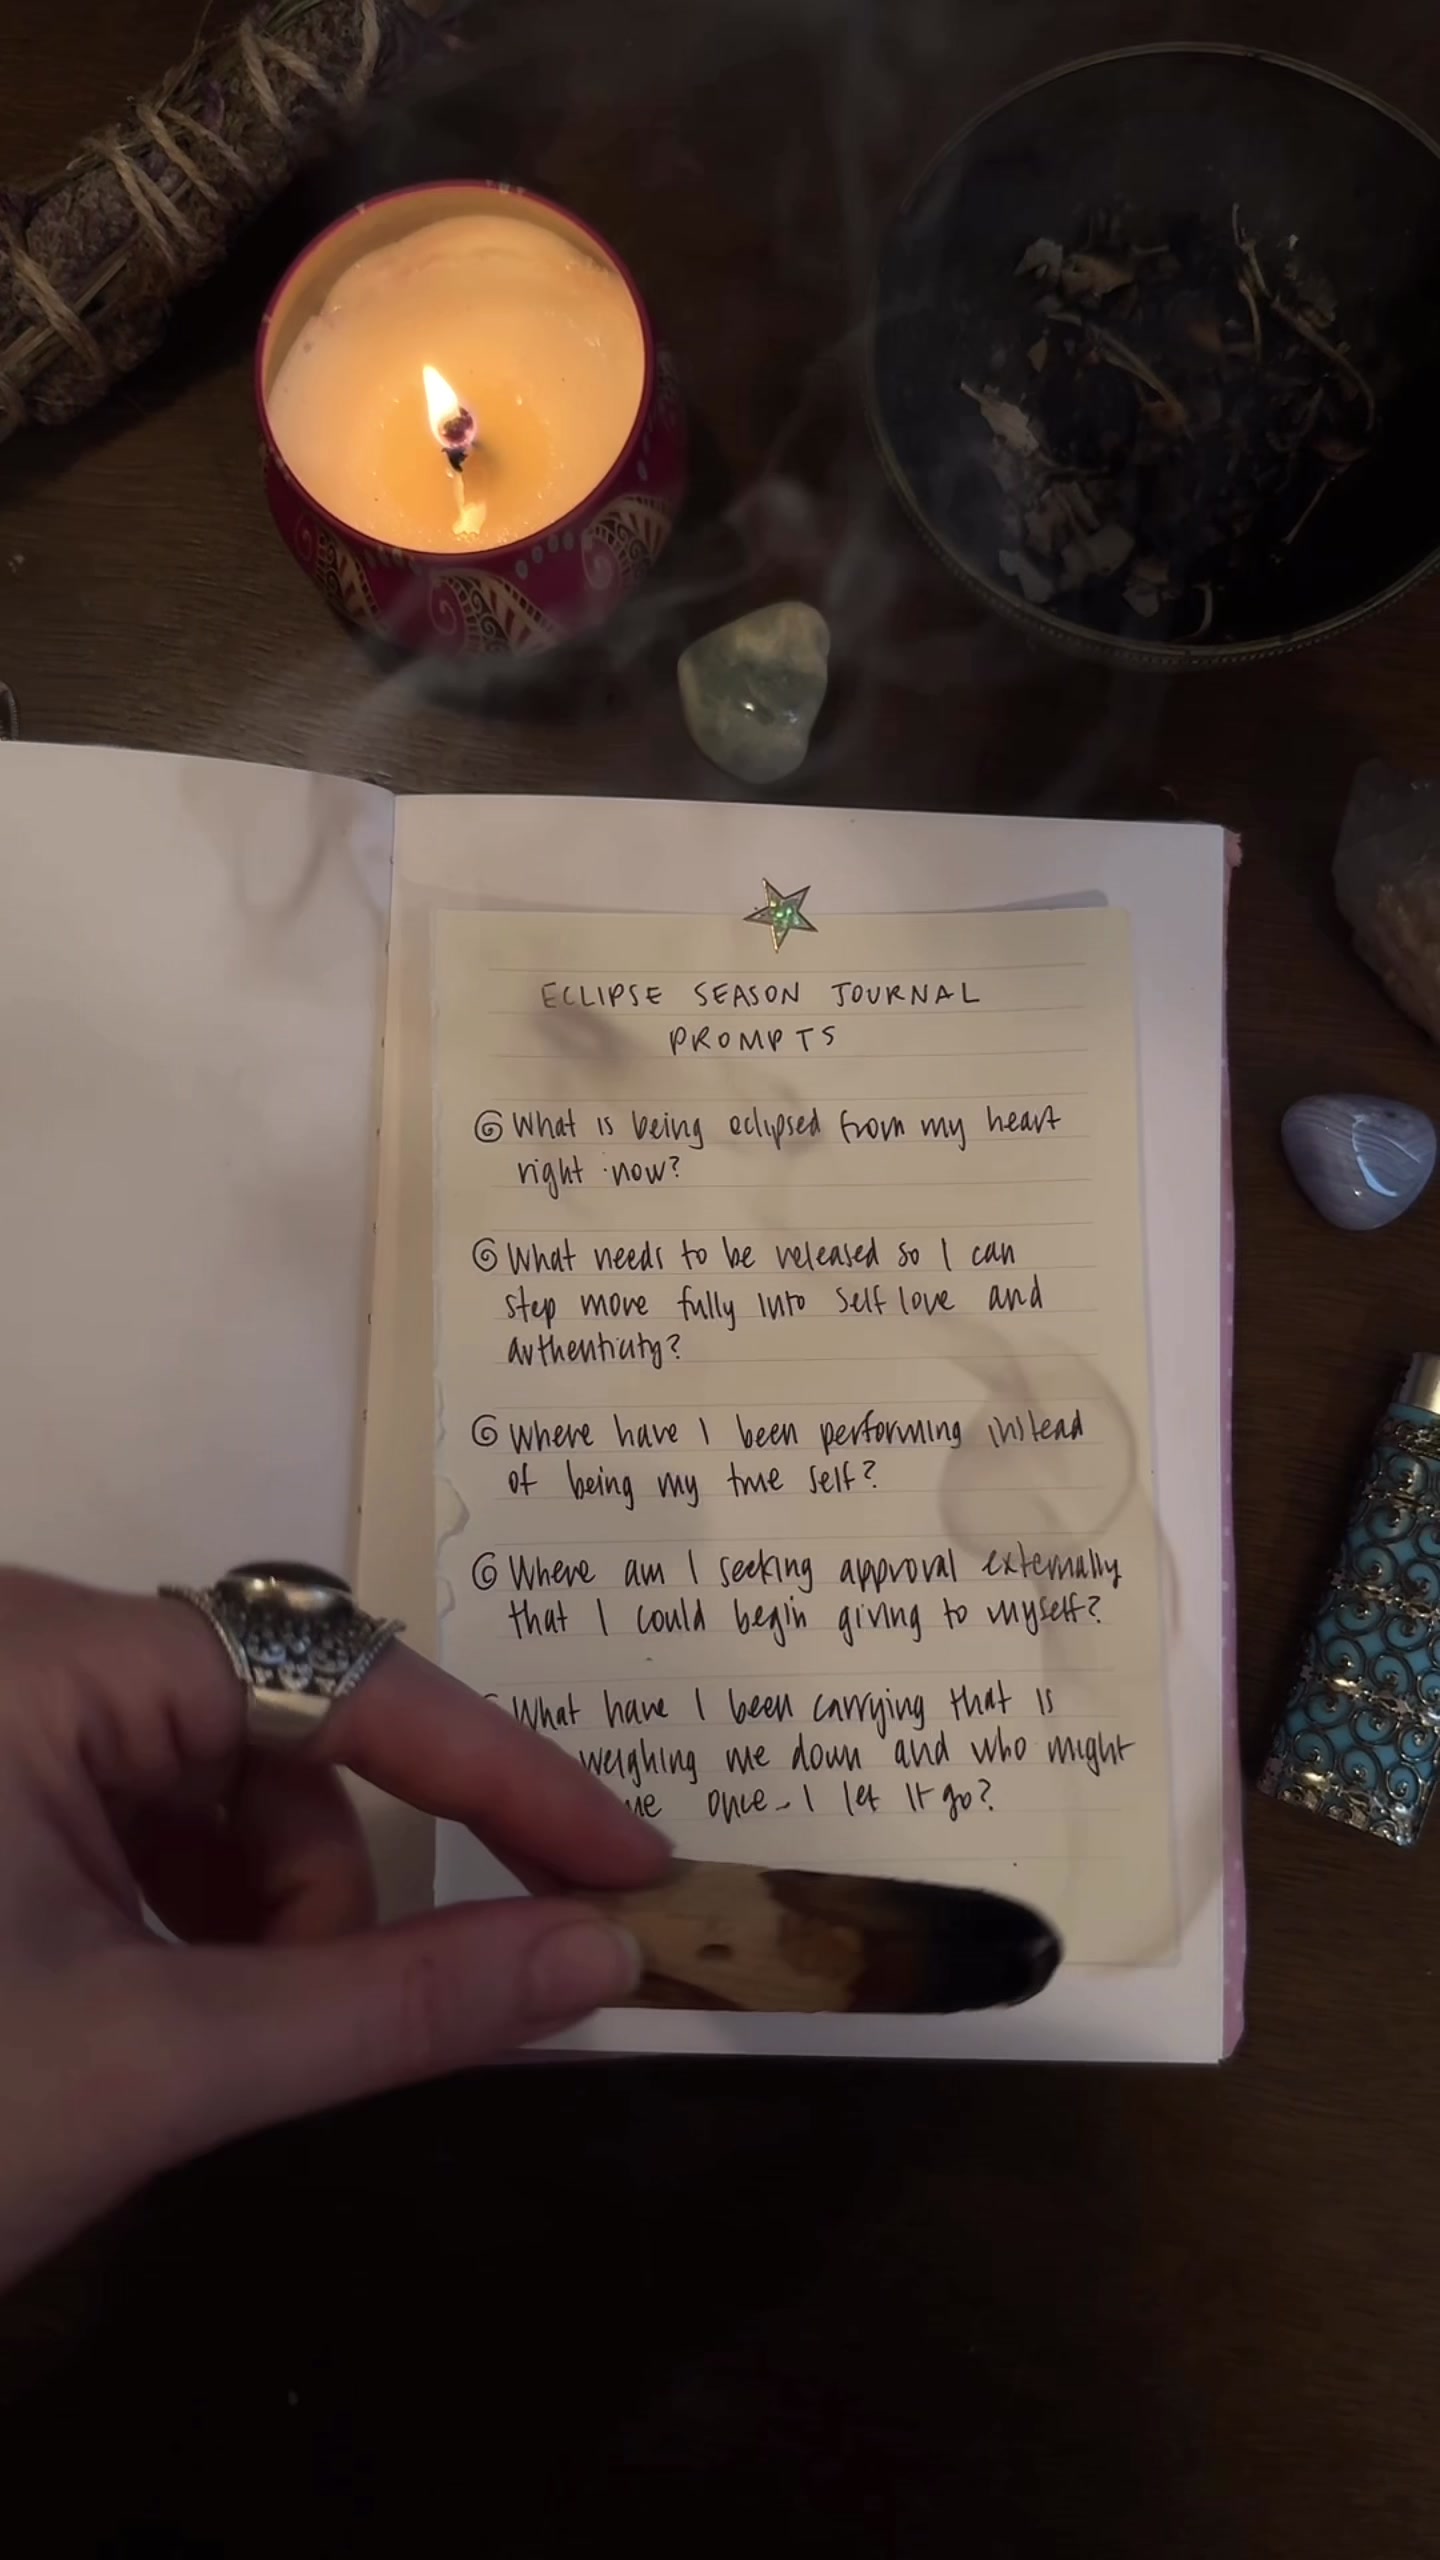 ECLIPSE SEASON JOURNAL
PROMPTS
What is being eclipsed from my heart
right now?
What needs to be released so I can
step more fully into self love and
authenticity?
Where have I been performing instead
of being my true self?
Where am I seeking approval externally
that I could begin giving to myself?
What have I been carrying that is
weighing me down and who might
once I let it go?